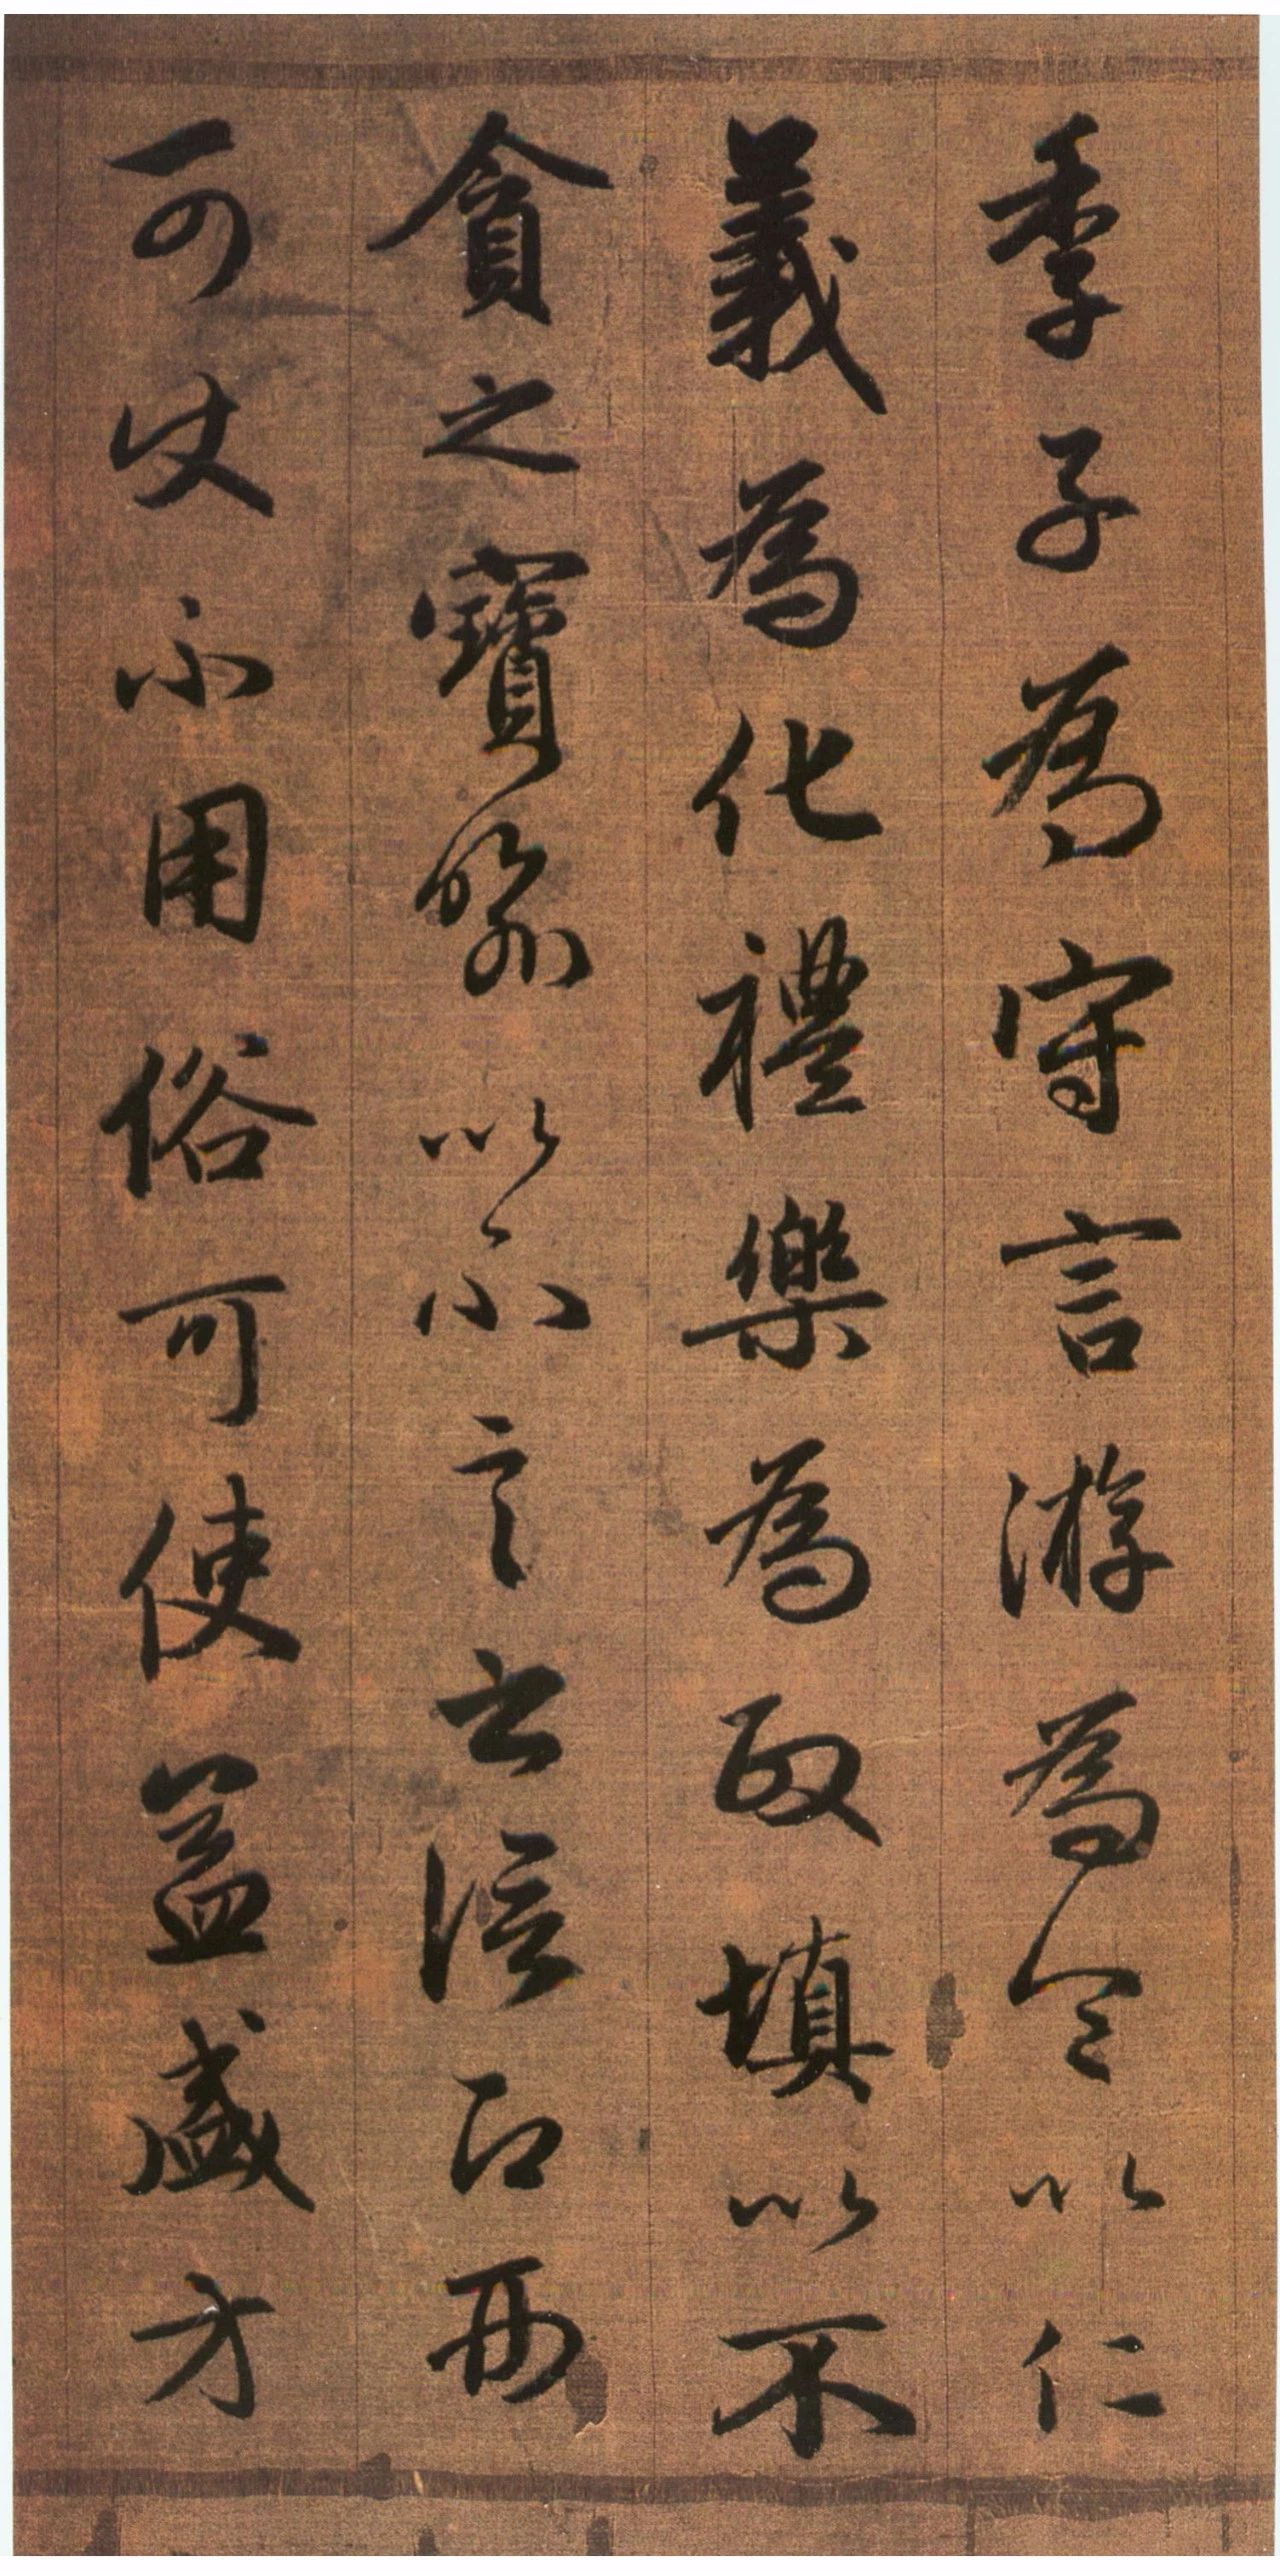 季子為守言游為令以仁
義為化禮樂為政填以不
貪之寶喻以不言之信即
可使不困俗可使益盛方